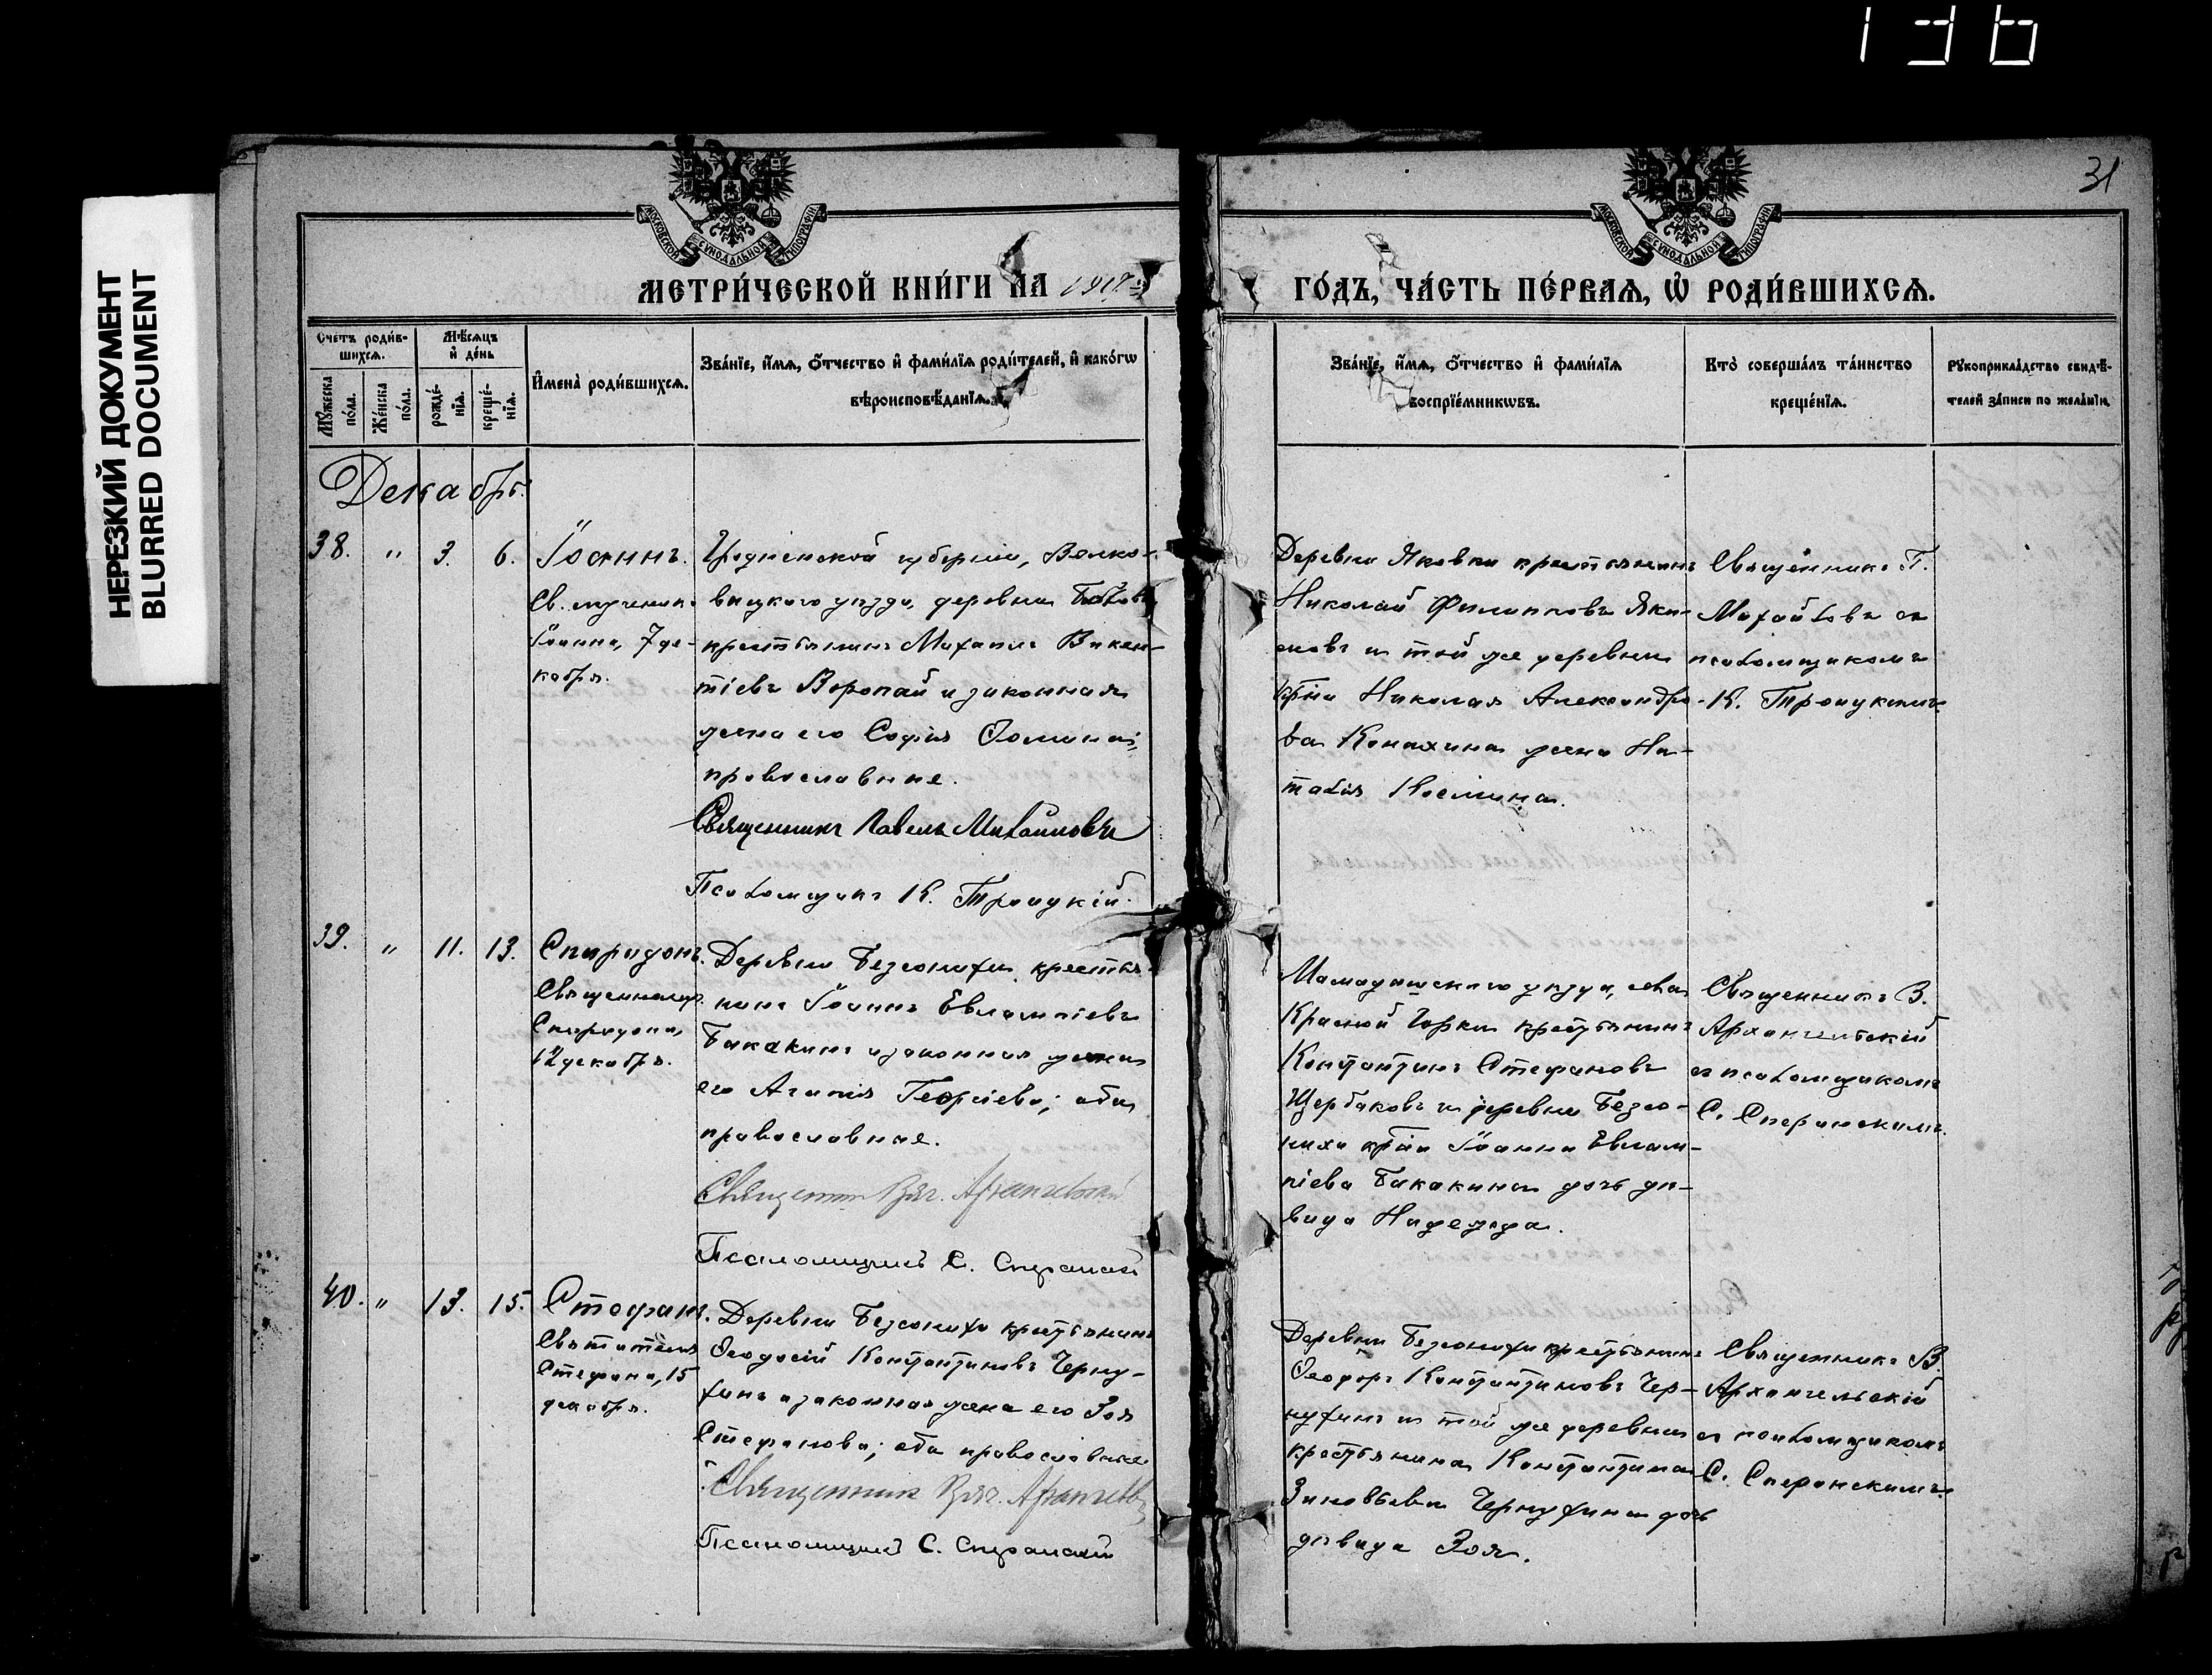 136
НЕРЕЗКИЙ ДОКУМЕНТ
BLURRED DOCUMENT
31
МОСКОВСКОЙ СѴНОДАЛЬНОЙ ТИПОГРАФІИ
МОСКОВСКОЙ СѴНОДАЛЬНОЙ ТИПОГРАФІИ
МЕТРИ́ЧЕСКОЙ КНИ́ГИ НА
ГО́ДЪ, ЧА́СТЬ ПЕ́РВАѦ, Ѡ҆ РОДИ́ВШИХСѦ.
Счетъ роди́в-
шихсѧ.
Мꙋжеска
по́ла.
Же́нска
по́ла.
Мѣ́сѧцъ
и҆ де́нь
рожде́-
нїѧ.
креще́-
нїѧ.
И҆мена̀ роди́вшихсѧ.
Зва́нїе, и҆́мѧ, ѻ҆́тчество и҆ фами́лїѧ роди́телей, и҆ како́гѡ
вѣроисповѣ́данїѧ.
Зва́нїе, и҆́мѧ, ѻ҆́тчество и҆ фами́лїѧ
воспрїе́мникѡвъ.
Кто̀ соверша́лъ та́инство
креще́нїѧ.
Рꙋкоприкла́дство свидѣ́-
телей за́писи по жела́нїю.
Декабрь.
38. " 3. 6. Іоаннъ.
Св. мученик.
Іоанна, 7 де-
кабря.
Гродненской губерніи, Волко-
выцкаго уѣзда, деревни
крестьянинъ Михаилъ Викен-
тіевъ Воропай и законная
жена его Софія Ѳомина;
православные.
Священникъ Павелъ Михайловъ
Псаломщикъ К. Троицкій.
Деревни Яковки крестьянинъ
Николай Филипповъ Яки-
мовъ и той же деревни
кр̃на Николая Александро-
ва Конахина жена На-
талія Косьмина.
Священникъ П.
Михайловъ съ
псаломщикомъ
К. Троицкимъ.
39. " 11. 13. Спиридонъ.
Священномуч.
Спиридона,
12 декабря.
Деревни Безсонихи крестья-
нинъ Іоаннъ Евлампіевъ
Бакакинъ и законная жена
его Агапія Георгіева; оба
православные.
Священник Вяч. Архангельский
Псаломщикъ С. Сперанскій
Мамадышскаго уѣзда, села
Красной Горки крестьянинъ
Константинъ Стефановъ
Щербаковъ и деревни Безсо-
нихи кр̃на Іоанна Евлам-
піева Бакакина дочь дѣ-
вица Надежда.
Священникъ В.
Архангельскій
съ псаломщикомъ
С. Сперанскимъ.
40. " 13. 15. Стефанъ.
Святителя
Стефана, 15
декабря.
Деревни Безсонихи крестьянинъ
Ѳеодосій Константиновъ Черну-
хинъ и законная жена его Зоя
Стефанова; оба православные
Священник Вяч. Архангель
Псаломщикъ С. Сперанскій
Деревни Безсонихи крестьянинъ
Ѳеодоръ Константиновъ Чер-
нухинъ и той же деревни
крестьянина Константина
Зиновьева Чернухина дочь
дѣвица Зоя.
Священникъ В.
Архангельскій
съ псаломщикомъ
С. Сперанскимъ.